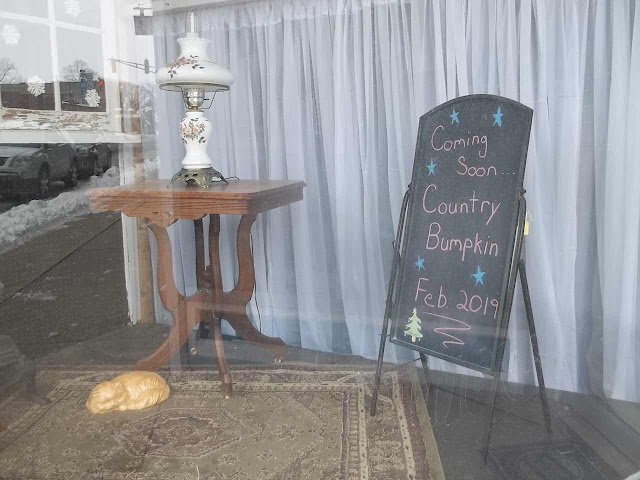 Coming
Soon...
Country
Bumpkin
Feb. 2019